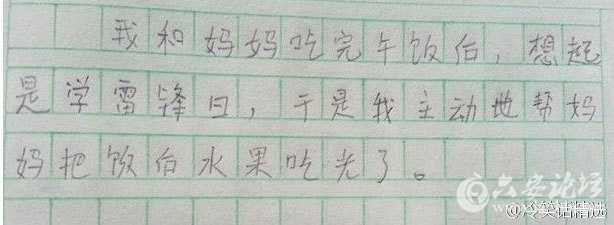 我和妈妈吃完午饭后，想起
是学雷锋日，于是我主动地帮妈
妈把饭后水果吃光了。
六安论坛
@冷笑话精选